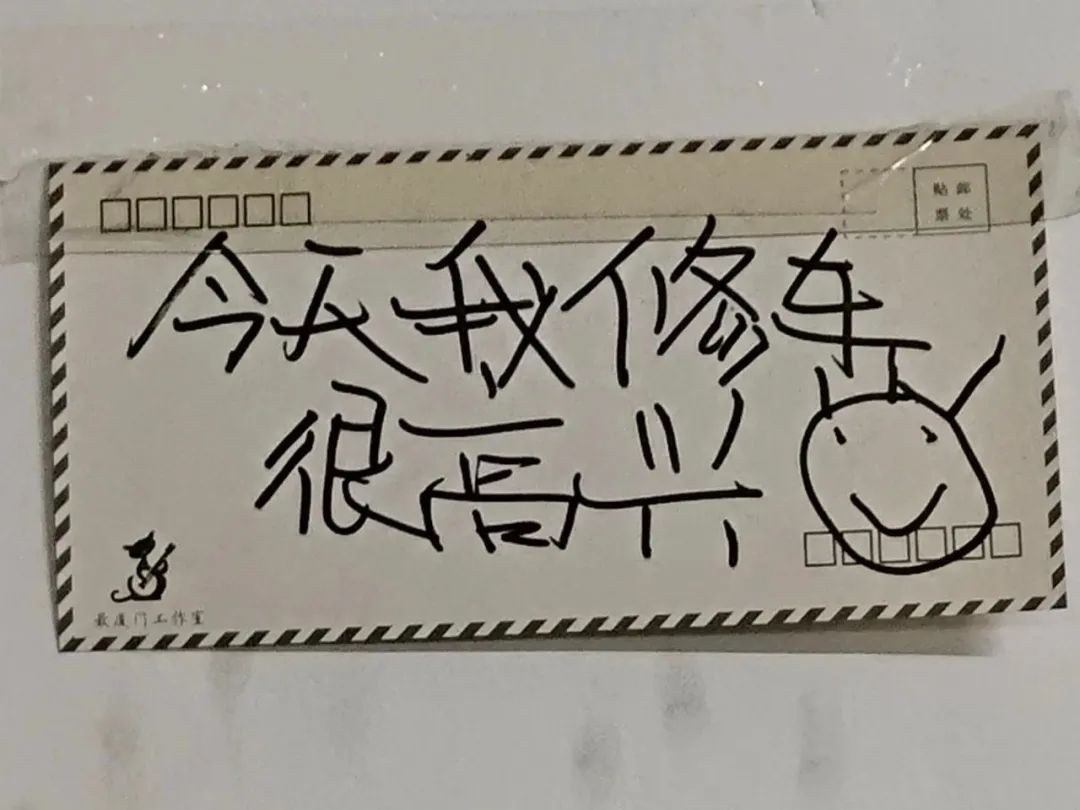 贴邮
票处
今天我修车
很高兴
最厦门工作室